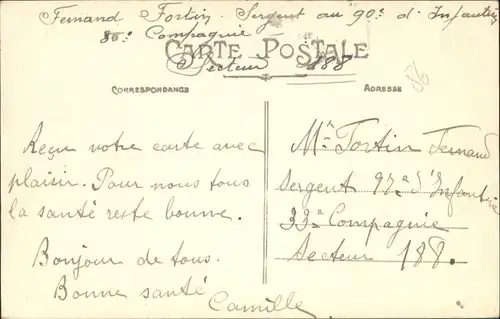 Fernand Fortin. Sergent au 90e d'Infanterie
86e Compagnie
CARTE POSTALE
Secteur 188
86
CORRESPONDANCE
ADRESSE
Reçu votre carte avec
plaisir. Pour nous tous
la santé reste bonne.
Bonjour de tous.
Bonne santé
Camille
Mr Fortin Fernand
Sergent 97e d'Infanterie
33e Compagnie
Secteur 188.